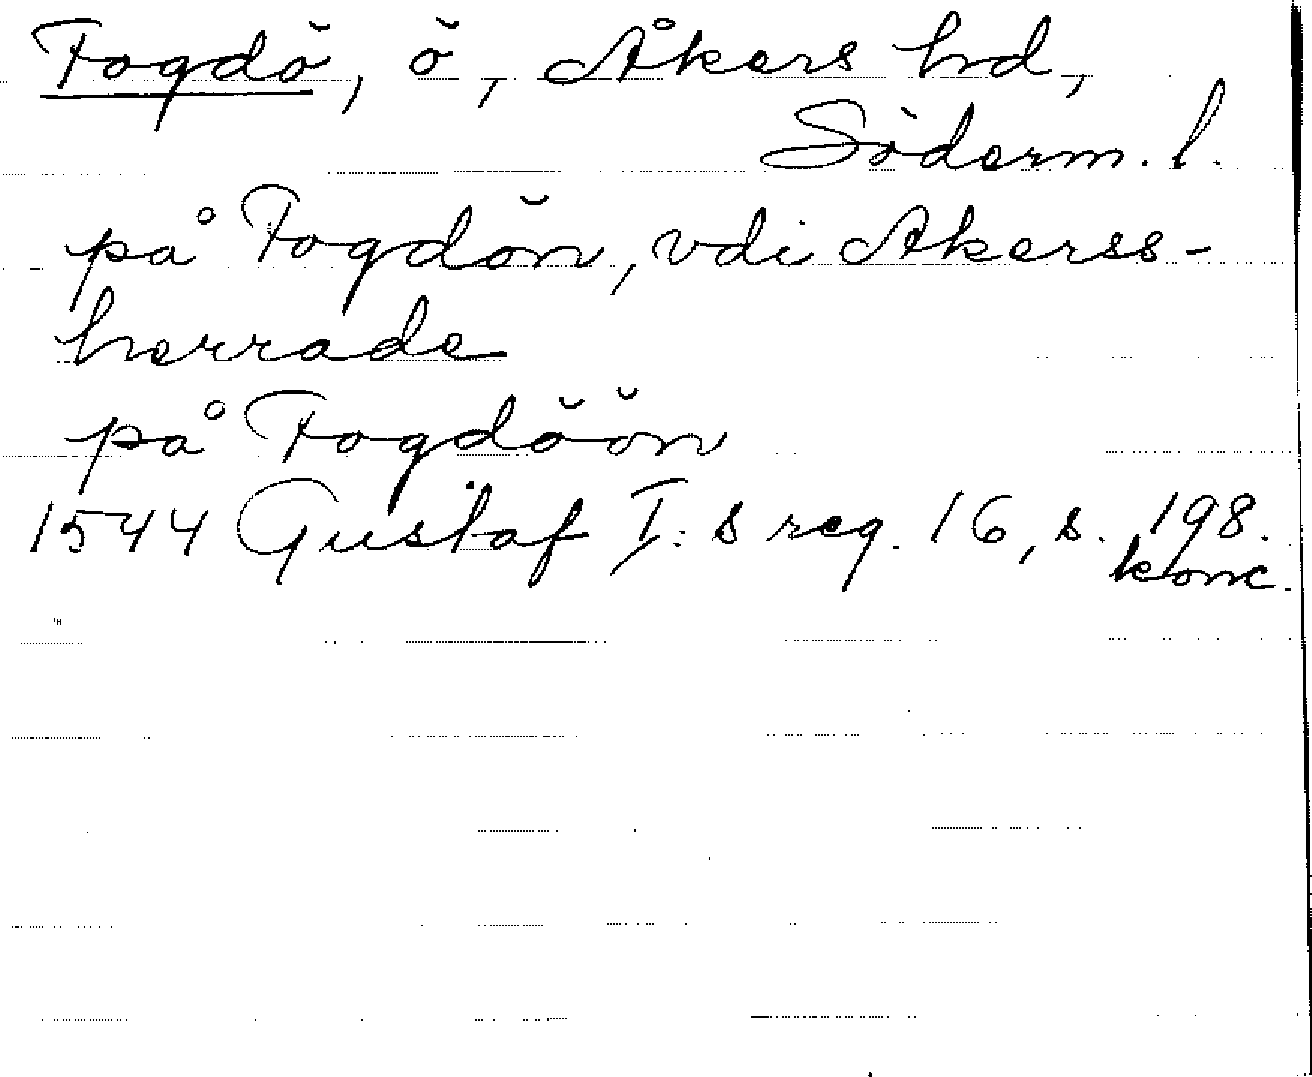 Fogdö, ö, Åkers hd,
Söderm. l.
på Fogdön, vdi Akerss-
herrade
på Fogdöön
1544 Gustaf I:s reg. 16, s. 198.
konc.